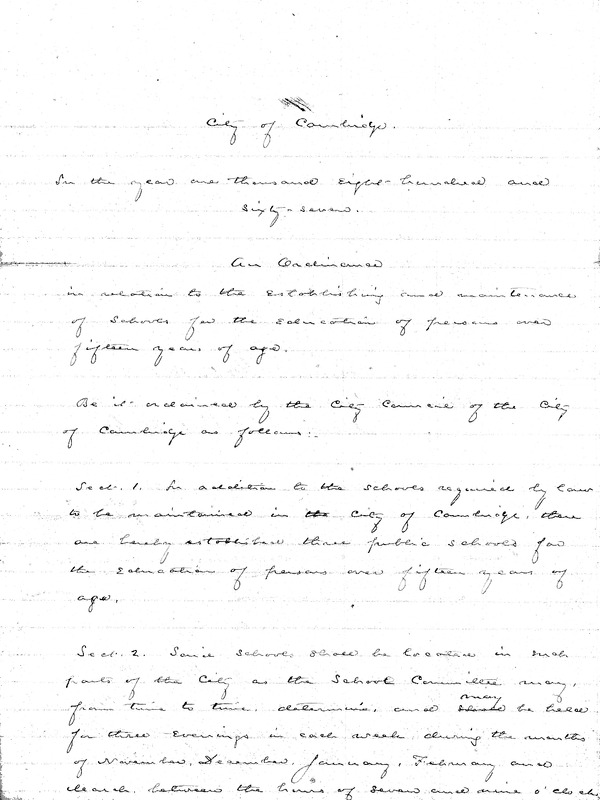 City of Cambridge.
In the year one thousand eight hundred and
sixty-seven.
An Ordinance
in relation to the establishing and maintenance
of schools for the education of persons over
fifteen years of age.
Be it ordained by the City Council of the City
of Cambridge as follows:
Sect. 1. In addition to the schools required by law
to be maintained in the City of Cambridge, there
are hereby established three public schools for
the education of persons over fifteen years of
age.
Sect. 2. Said schools shall be located in such
parts of the City as the School Committee may,
from time to time, determine, and shall may be held
for three evenings in each week during the months
of November, December, January, February and
March, between the hours of seven and nine o'clock,